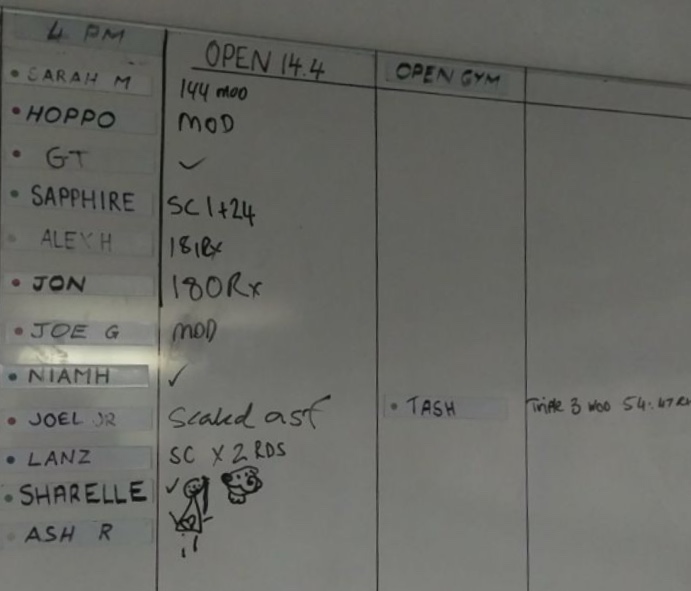 4 PM OPEN 14.4 OPEN GYM
SARAH M 144 MOD
HOPPO MOD
GT ✓
SAPPHIRE SC 1+24
ALEX H 181Rx
JON 180Rx
JOE G MOD
NIAMH ✓
JOEL JR Scaled asf TASH Triple 3 WOD 54:47 Rx
LANZ SC X 2 RDS
SHARELLE ✓
ASH R ✓